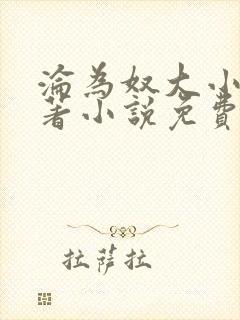 淪為奴大小
著小說免費
拉薩拉